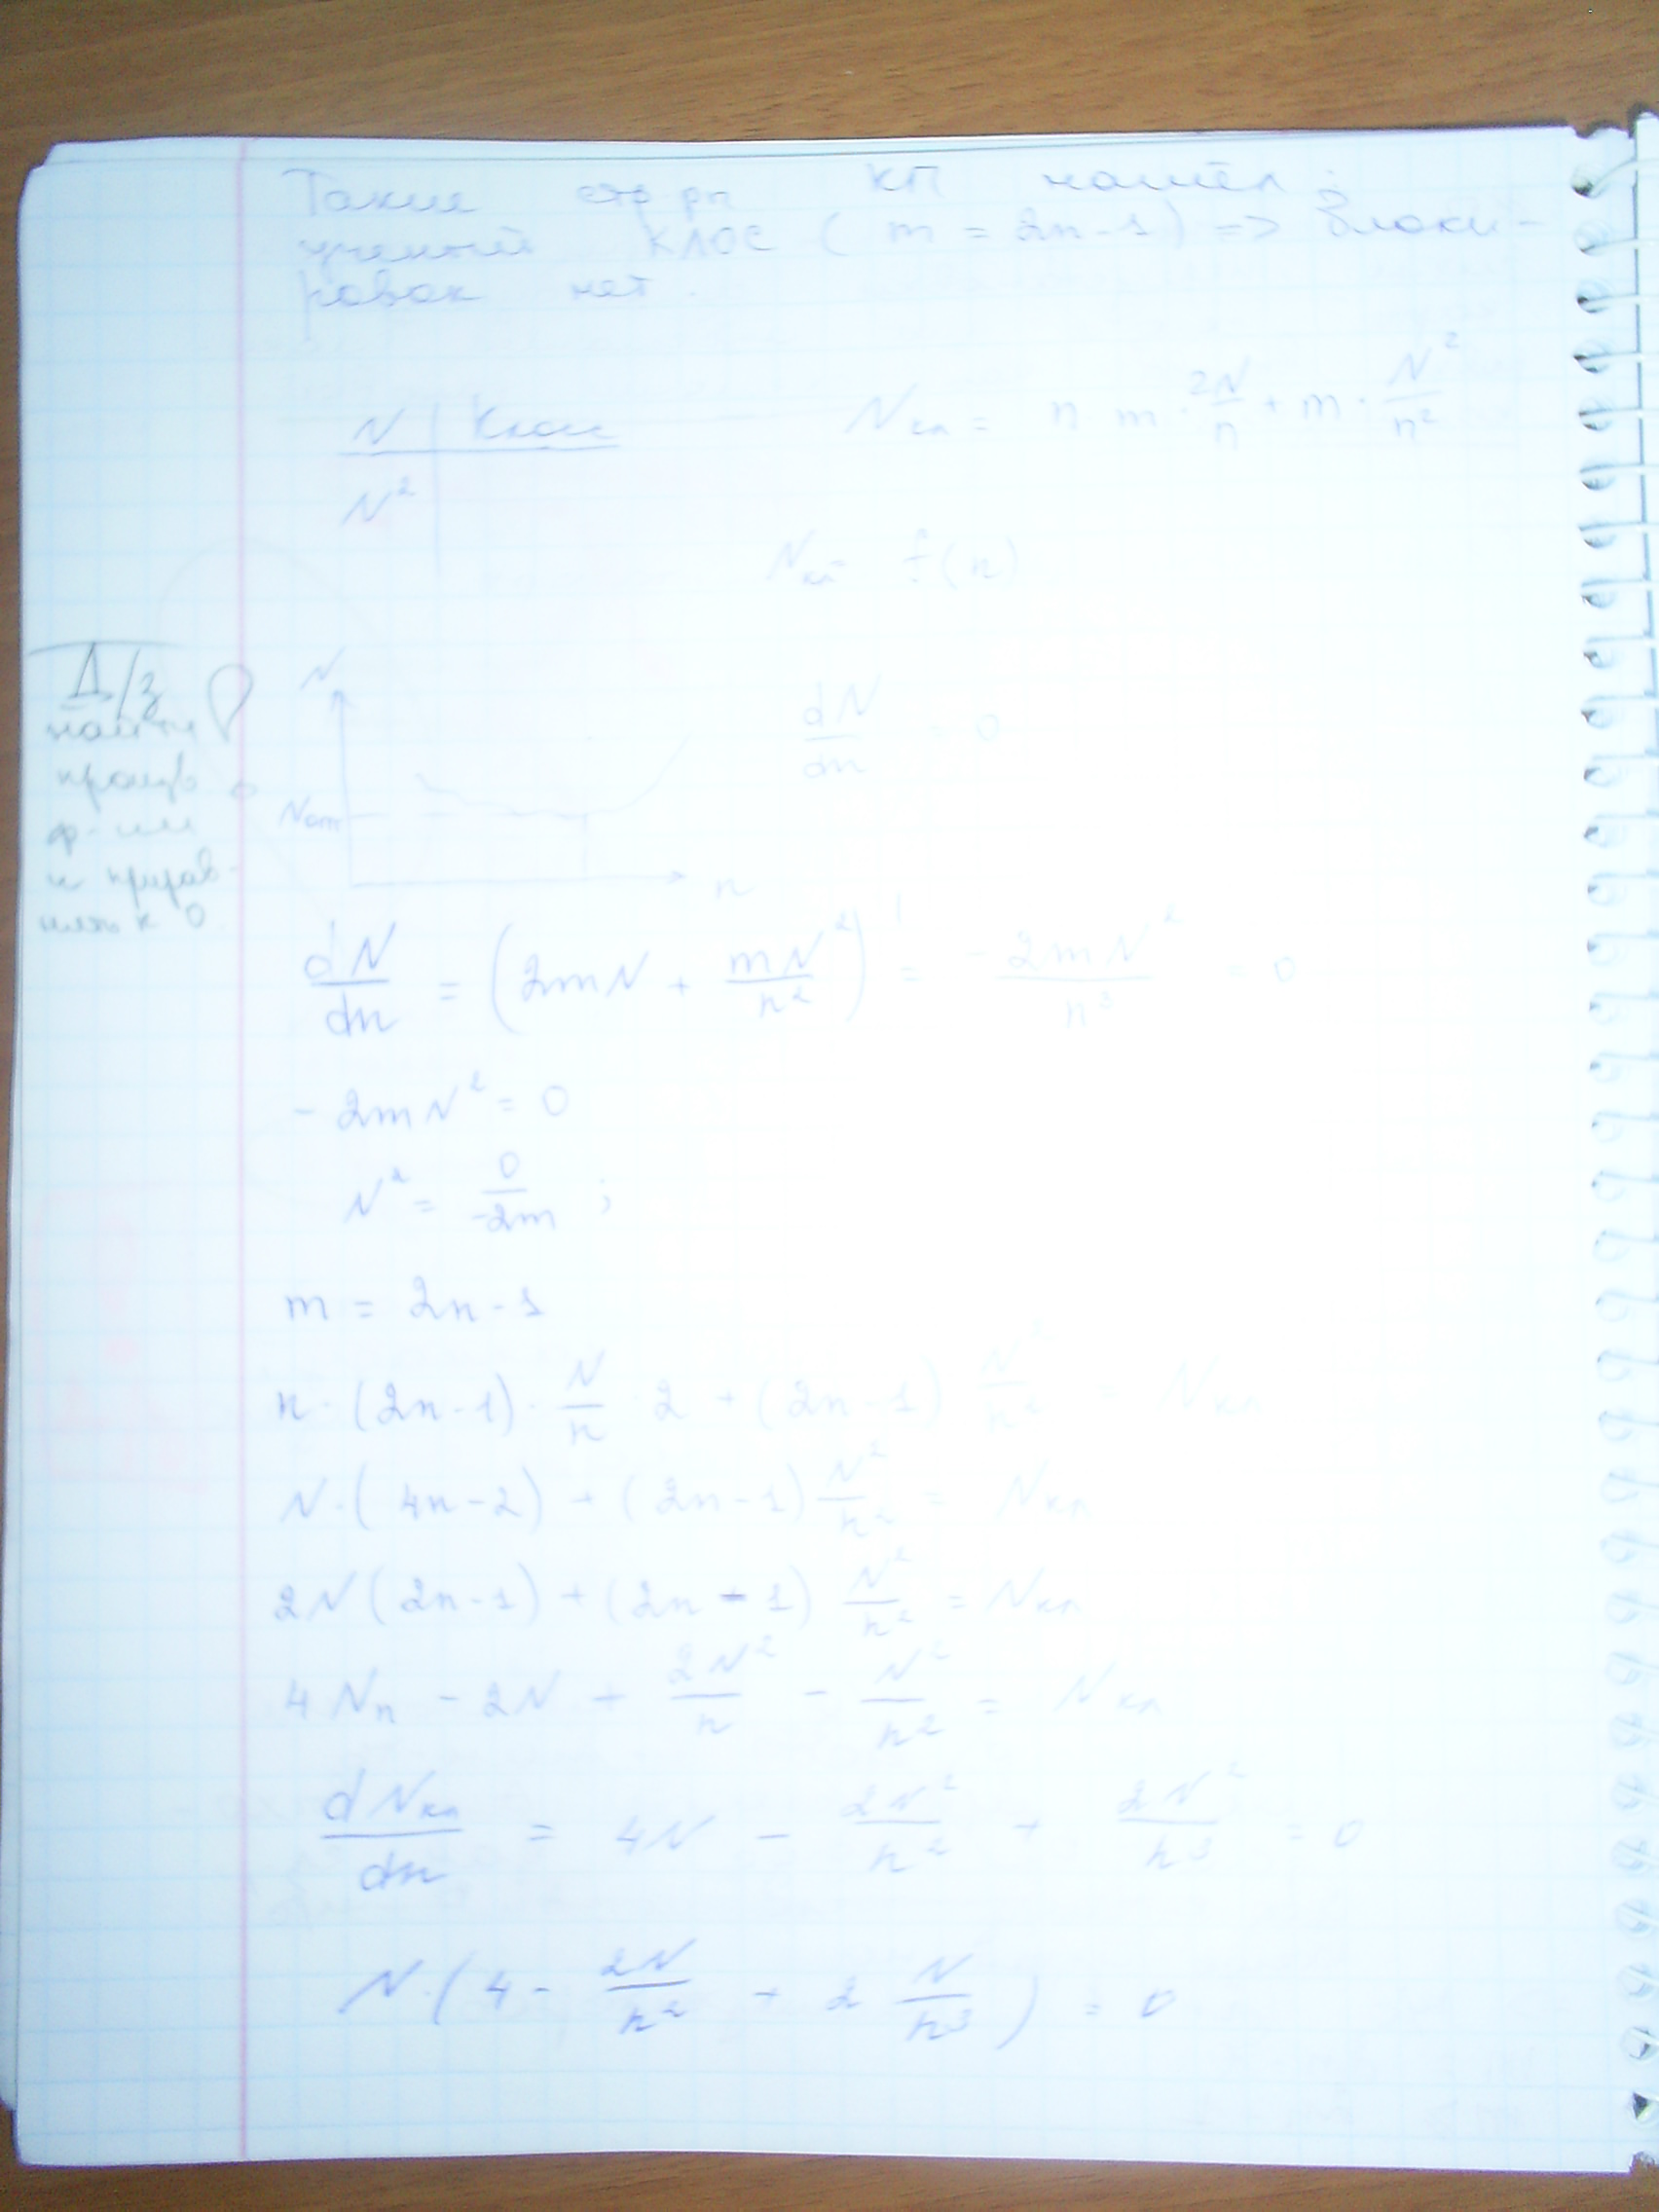 Такие стр-ры КП нашёл
ученый КЛОС ( m = 2n-1 ) => блоки-
ровок нет.
N_кп = n · m · 2N/n + m · N²/n²
N | Клос
N²
N_кп = f(n)
Д/з
найти
произв
ф-ии
и прирав-
нять к 0
N
dN/dn = 0
Nопт
n
dN/dn = (2mN + mN²/n²)' = -2mN²/n³ = 0
- 2mN² = 0
N² = 0/-2m ;
m = 2n - 1
n · (2n-1) · N/n · 2 + (2n-1) N²/n² = N_кп
N · ( 4n-2) + (2n-1) N²/n² = N_кп
2N (2n-1) + (2n - 1) N²/n² = N_кп
4Nn - 2N + 2N²/n - N²/n² = N_кп
dN_кп/dn = 4N - 2N²/n² + 2N²/n³ = 0
N · ( 4 - 2N/n² + 2 N/n³ ) = 0